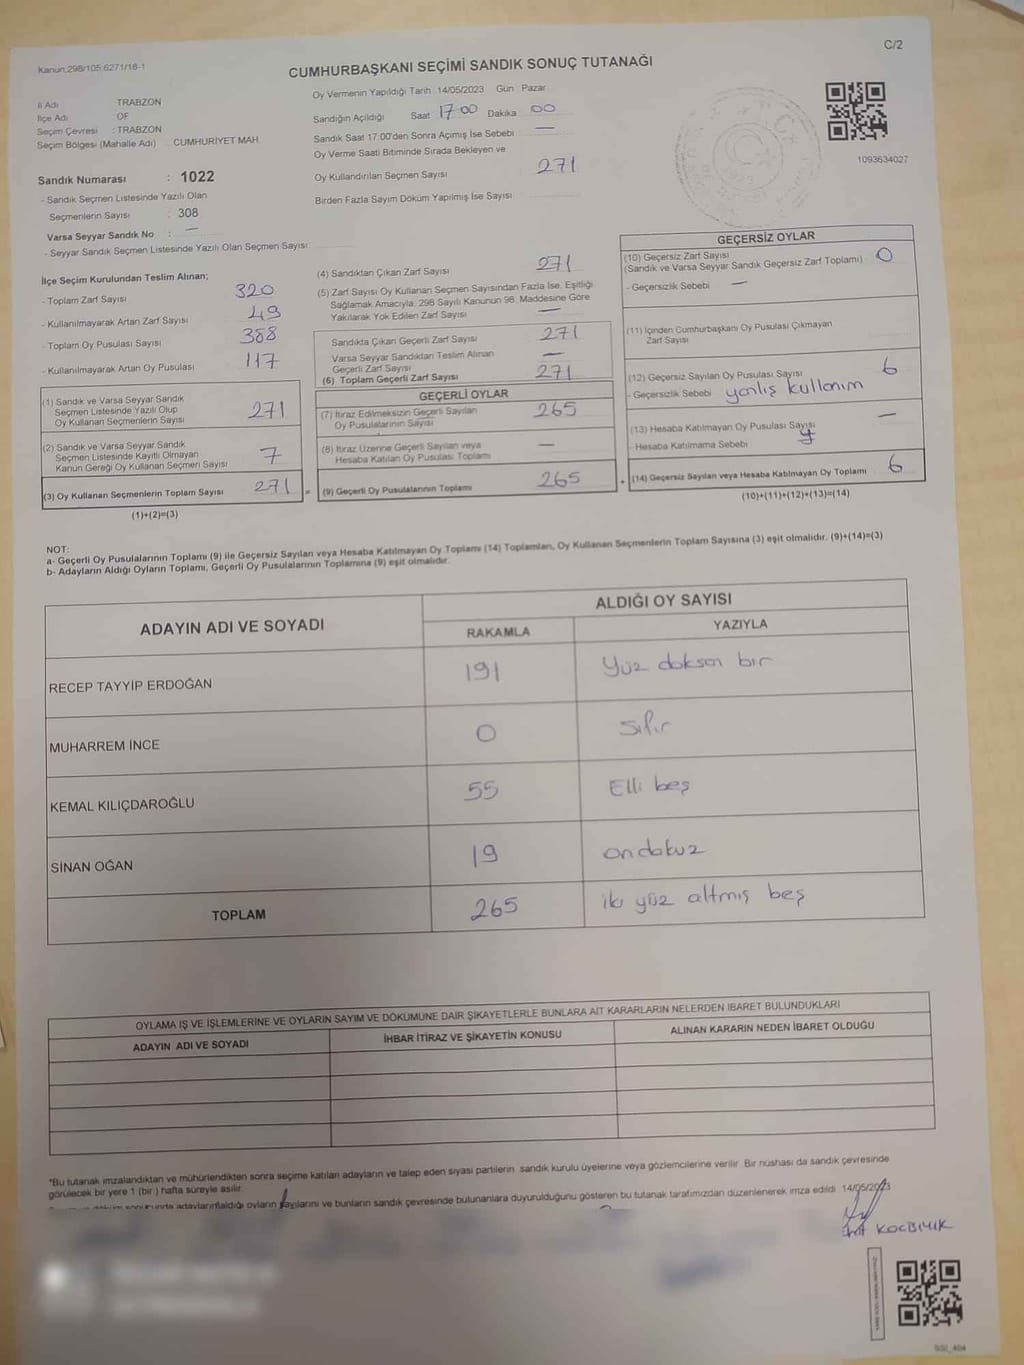 C/2
Kanun:298/105;6271/18-1
CUMHURBAŞKANI SEÇİMİ SANDIK SONUÇ TUTANAĞI
İl Adı TRABZON
İlçe Adı OF
Seçim Çevresi : TRABZON
Seçim Bölgesi (Mahalle Adı) CUMHURİYET MAH
Sandık Numarası : 1022
- Sandık Seçmen Listesinde Yazılı Olan
Seçmenlerin Sayısı : 308
Varsa Seyyar Sandık No : —
- Seyyar Sandık Seçmen Listesinde Yazılı Olan Seçmen Sayısı:
Oy Vermenin Yapıldığı Tarih :14/05/2023 Gün Pazar
Sandığın Açıldığı Saat 17 00 Dakika 00
Sandık Saat 17:00'den Sonra Açımış İse Sebebi —
Oy Verme Saati Bitiminde Sırada Bekleyen ve
Oy Kullandırılan Seçmen Sayısı 271
Birden Fazla Sayım Döküm Yapılmış İse Sayısı
1093634027
İlçe Seçim Kurulundan Teslim Alınan;
- Toplam Zarf Sayısı 320
- Kullanılmayarak Artan Zarf Sayısı 49
- Toplam Oy Pusulası Sayısı 388
- Kullanılmayarak Artan Oy Pusulası 117
(1) Sandık ve Varsa Seyyar Sandık
Seçmen Listesinde Yazılı Olup
Oy Kullanan Seçmenlerin Sayısı 271
(2) Sandık ve Varsa Seyyar Sandık
Seçmen Listesinde Kayıtlı Olmayan
Kanun Gereği Oy Kullanan Seçmen Sayısı 7
(3) Oy Kullanan Seçmenlerin Toplam Sayısı 271
(1)+(2)=(3)
(4) Sandıktan Çıkan Zarf Sayısı 271
(5) Zarf Sayısı Oy Kullanan Seçmen Sayısından Fazla İse, Eşitliği
Sağlamak Amacıyla, 298 Sayılı Kanunun 98. Maddesine Göre
Yakılarak Yok Edilen Zarf Sayısı —
Sandıkta Çıkan Geçerli Zarf Sayısı 271
Varsa Seyyar Sandıktan Teslim Alınan
Geçerli Zarf Sayısı —
(6) Toplam Geçerli Zarf Sayısı 271
GEÇERLİ OYLAR
(7) İtiraz Edilmeksizin Geçerli Sayılan
Oy Pusulalarının Sayısı 265
(8) İtiraz Üzerine Geçerli Sayılan veya
Hesaba Katılan Oy Pusulası Toplamı —
= (9) Geçerli Oy Pusulalarının Toplamı 265
GEÇERSİZ OYLAR
(10) Geçersiz Zarf Sayısı
(Sandık ve Varsa Seyyar Sandık Geçersiz Zarf Toplamı) 0
- Geçersizlik Sebebi —
(11) İçinden Cumhurbaşkanı Oy Pusulası Çıkmayan
Zarf Sayısı
(12) Geçersiz Sayılan Oy Pusulası Sayısı 6
- Geçersizlik Sebebi yanlış kullanım
(13) Hesaba Katılmayan Oy Pusulası Sayısı —
- Hesaba Katılmama Sebebi
+ (14) Geçersiz Sayılan veya Hesaba Katılmayan Oy Toplamı 6
(10)+(11)+(12)+(13)=(14)
NOT:
a- Geçerli Oy Pusulalarının Toplamı (9) ile Geçersiz Sayılan veya Hesaba Katılmayan Oy Toplamı (14) Toplamları, Oy Kullanan Seçmenlerin Toplam Sayısına (3) eşit olmalıdır. (9)+(14)=(3)
b- Adayların Aldığı Oyların Toplamı, Geçerli Oy Pusulalarının Toplamına (9) eşit olmalıdır.
ADAYIN ADI VE SOYADI ALDIĞI OY SAYISI
RAKAMLA YAZIYLA
RECEP TAYYİP ERDOĞAN 191 Yüz doksan bir
MUHARREM İNCE 0 Sıfır
KEMAL KILIÇDAROĞLU 55 Elli beş
SİNAN OĞAN 19 ondokuz
TOPLAM 265 iki yüz altmış beş
OYLAMA İŞ VE İŞLEMLERİNE VE OYLARIN SAYIM VE DÖKÜMÜNE DAİR ŞİKAYETLERLE BUNLARA AİT KARARLARIN NELERDEN İBARET BULUNDUKLARI
ADAYIN ADI VE SOYADI İHBAR İTİRAZ VE ŞİKAYETİN KONUSU ALINAN KARARIN NEDEN İBARET OLDUĞU
*Bu tutanak imzalandıktan ve mühürlendikten sonra seçime katılan adayların ve talep eden siyasi partilerin sandık kurulu üyelerine veya gözlemcilerine verilir. Bir nüshası da sandık çevresinde
görülecek bir yere 1 (bir ) hafta süreyle asılır.
adayların aldığı oyların sayılarını ve bunların sandık çevresinde bulunanlara duyurulduğunu gösteren bu tutanak tarafımızdan düzenlenerek imza edildi. 14/05/2023
KOCBIYIK